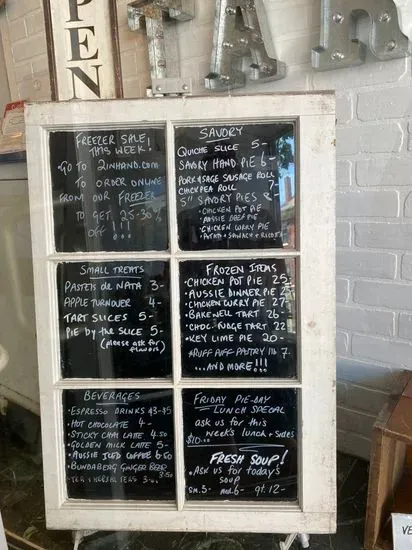 OPEN
TAR
FREEZER SALE
THIS WEEK!
GO TO 2INHAND.COM
TO ORDER ONLINE
FROM OUR FREEZER
TO GET 25-30%
OFF !!!
SAVORY
QUICHE SLICE 5-
SAVORY HAND PIE 6-
PORK & SAGE SAUSAGE ROLL
CHICKPEA ROLL 7-
5" SAVORY PIES 8-
• CHICKEN POT PIE
• AUSSIE BEEF PIE
• CHICKEN CURRY PIE
• POTATO + SPINACH + RICOTTA
SMALL TREATS
PASTEIS de NATA 3-
APPLE TURNOVER 4-
TART SLICES 5-
PIE by the SLICE 5-
(please ask for
flavors)
FROZEN ITEMS
• CHICKEN POT PIE 25-
• AUSSIE DINNER PIE
• CHICKEN CURRY PIE 27-
• BAKEWELL TART 26-
• CHOC. FUDGE TART 22
• KEY LIME PIE 20-
RUFF PUFF PASTRY 1lb 7.
...AND MORE !!!
BEVERAGES
• ESPRESSO DRINKS $3-$5
• HOT CHOCOLATE 4-
• STICKY CHAI LATTE 4.50
• GOLDEN MILK LATTE 5-
• AUSSIE ICED COFFEE 6.50
• BUNDABERG GINGER BEER
3.50
FRIDAY PIE-DAY
LUNCH SPECIAL
ask us for this
week's lunch + sides
$10
FRESH SOUP!
• Ask us for today's
soup
SM. 5- MED. 6- qt. 12-
VE